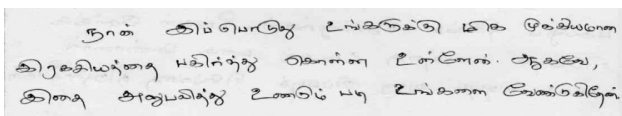 நான் இப்பொழுது உங்களுக்கு மிக முக்கியமான
இரகசியத்தை பகிர்ந்து கொள்ள உள்ளேன். ஆகவே,
இதை அனுபவித்து உண்டும் படி உங்களை வேண்டுகிறேன்